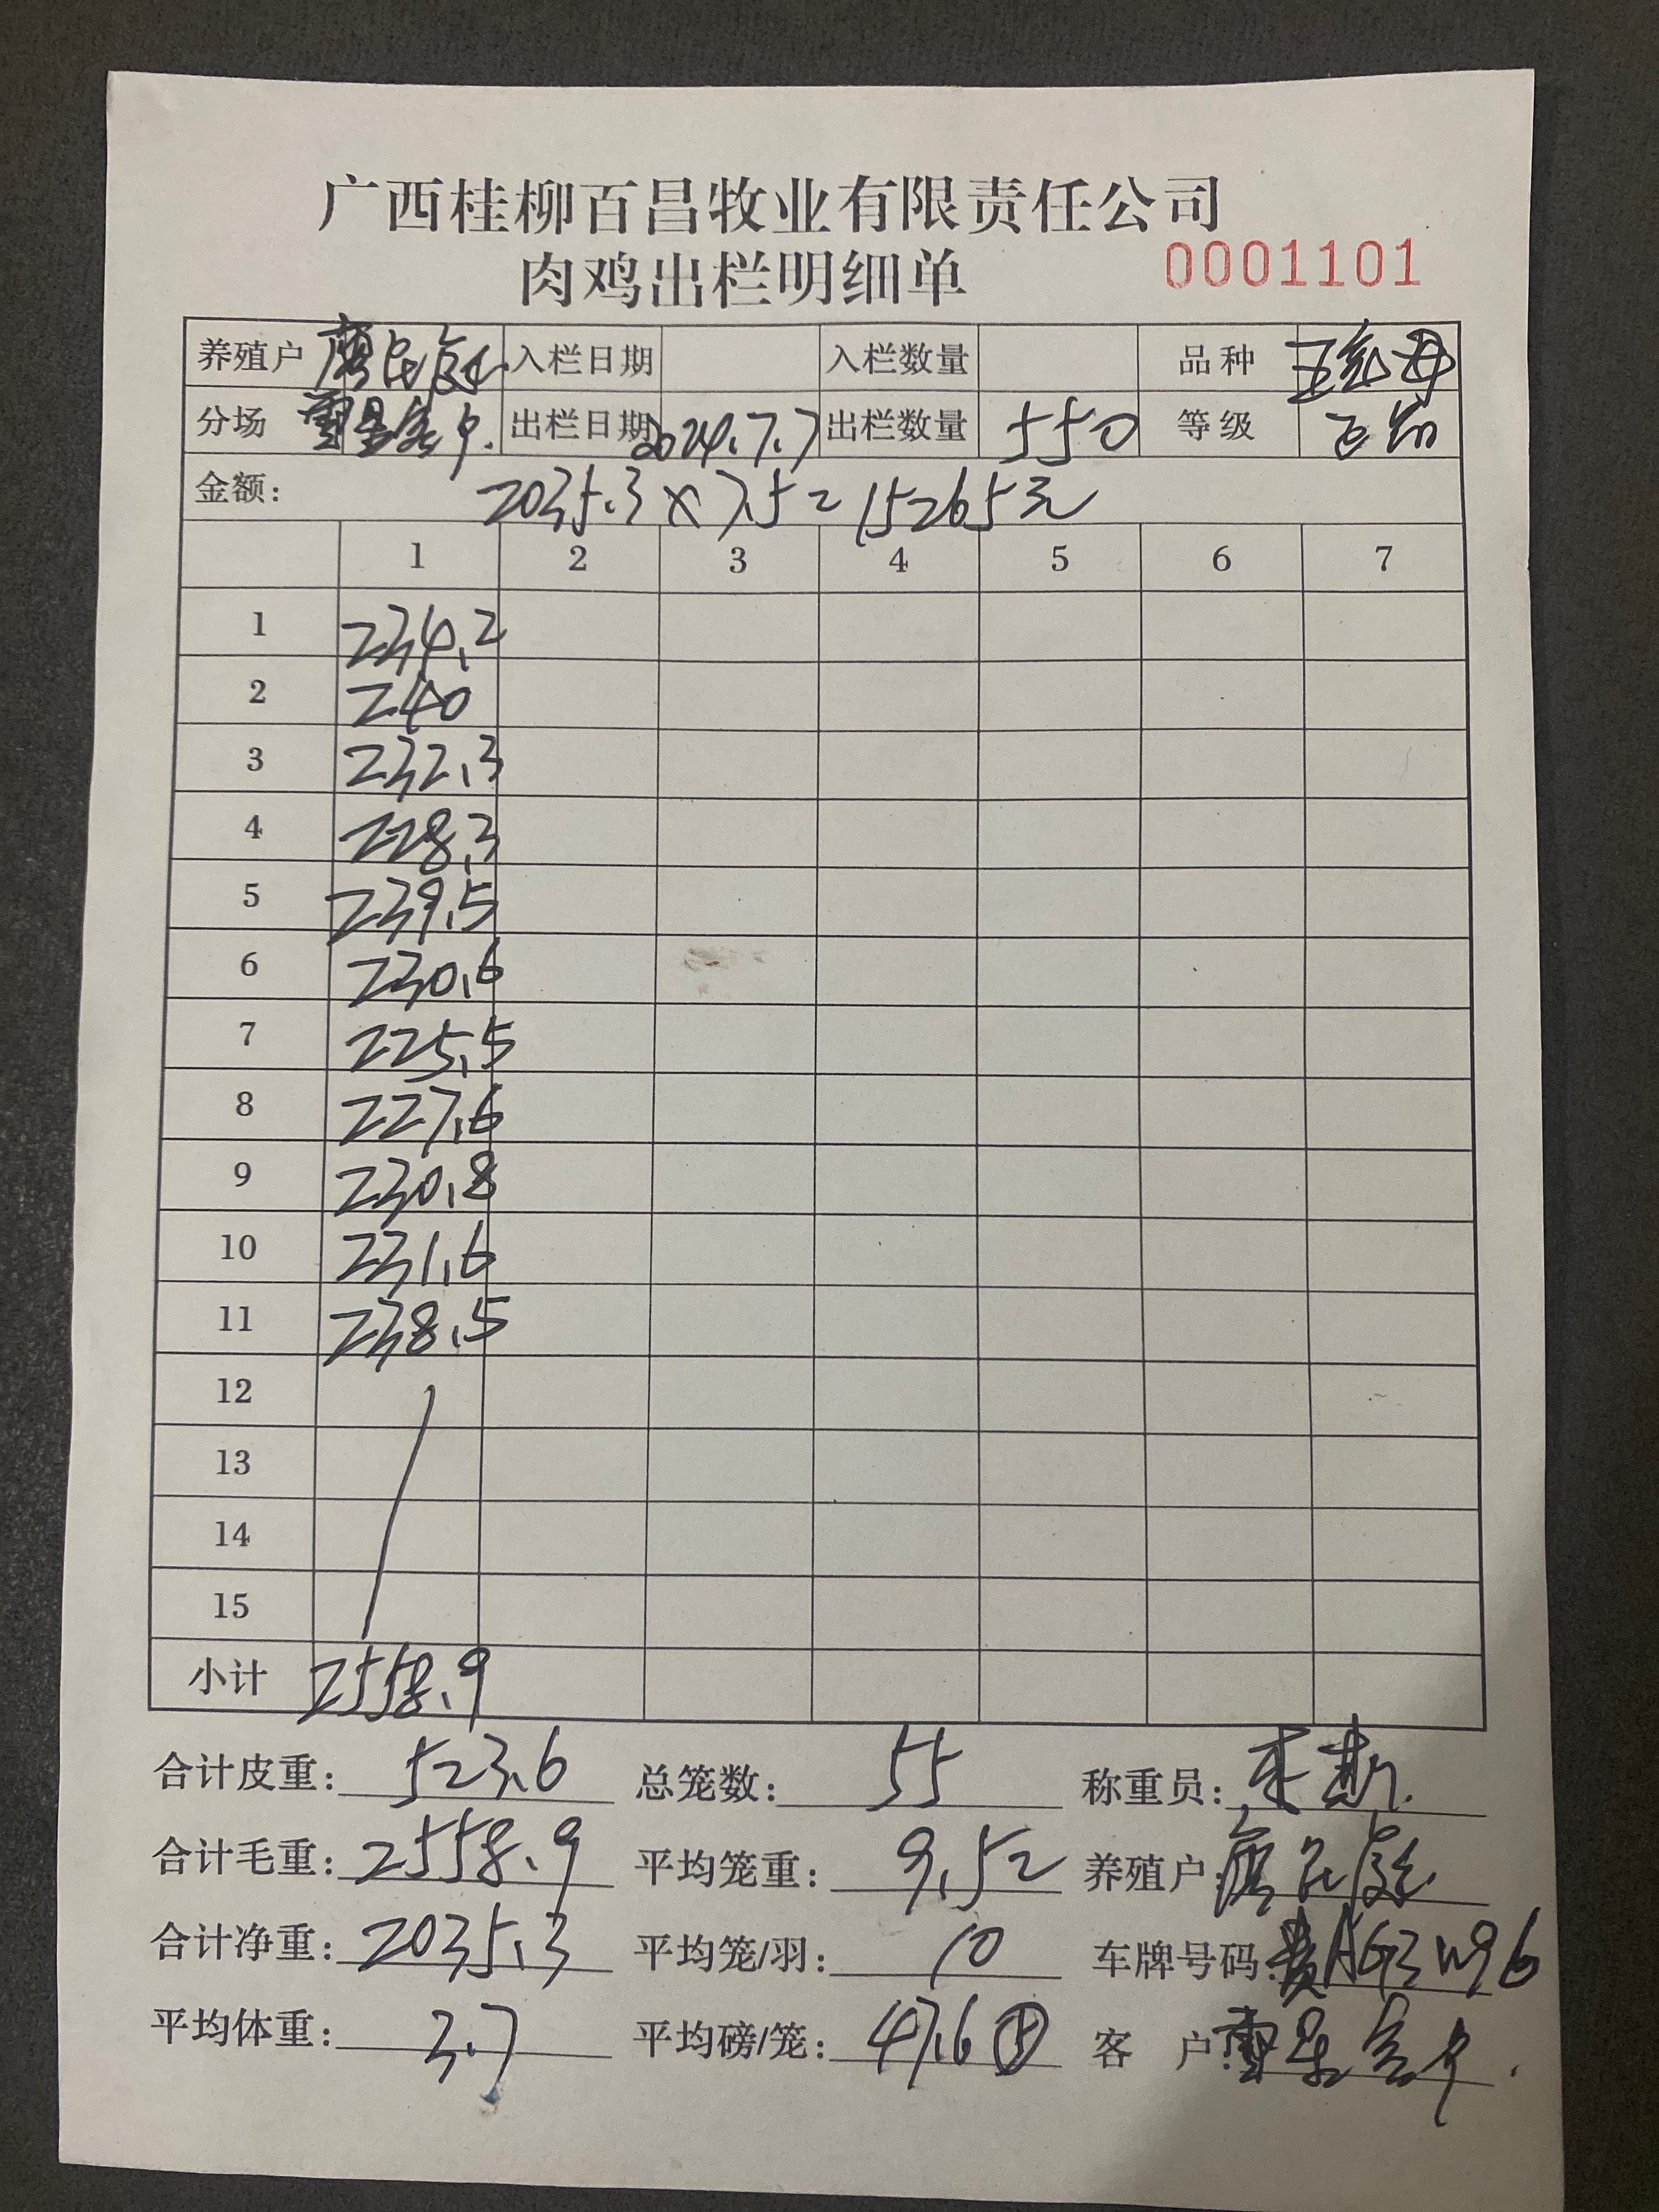 广西桂柳百昌牧业有限责任公司
肉鸡出栏明细单 0001101
养殖户 入栏日期 入栏数量 品种
分场 出栏日期 2024.7.7 出栏数量 550 等级
金额: 2035.3×7.5=15265元
1 2 3 4 5 6 7
1 234.2
2 240
3 232.3
4 228.3
5 239.5
6 230.6
7 225.5
8 227.6
9 230.8
10 231.6
11 238.5
12
13
14
15
小计 2558.9
合计皮重: 523.6 总笼数: 55 称重员:
合计毛重: 2558.9 平均笼重: 9.52 养殖户:
合计净重: 2035.3 平均笼/羽: 10 车牌号码: 贵AG3W96
平均体重: 3.7 平均磅/笼: 47.6 客 户: